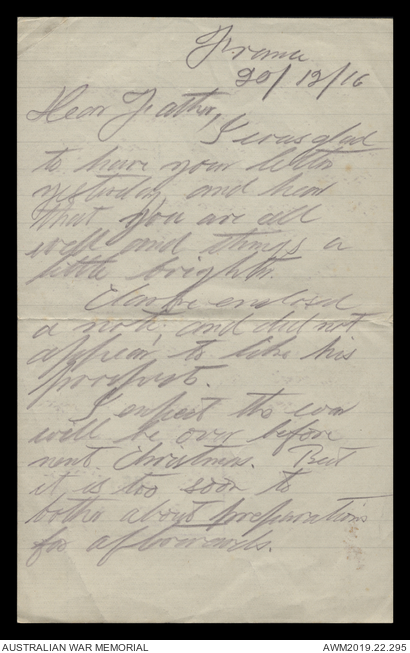 France
20/12/16
Dear Father,
I was glad
to have your letter
yesterday and hear
that you are all
well and things a
little brighter.
enclosed
a note, and did not
appear to like his
prospects.
I expect the war
will be over before
next Christmas. But
it is too soon to
bother about preparations
for afterwards.
AUSTRALIAN WAR MEMORIAL
AWM2019.22.295